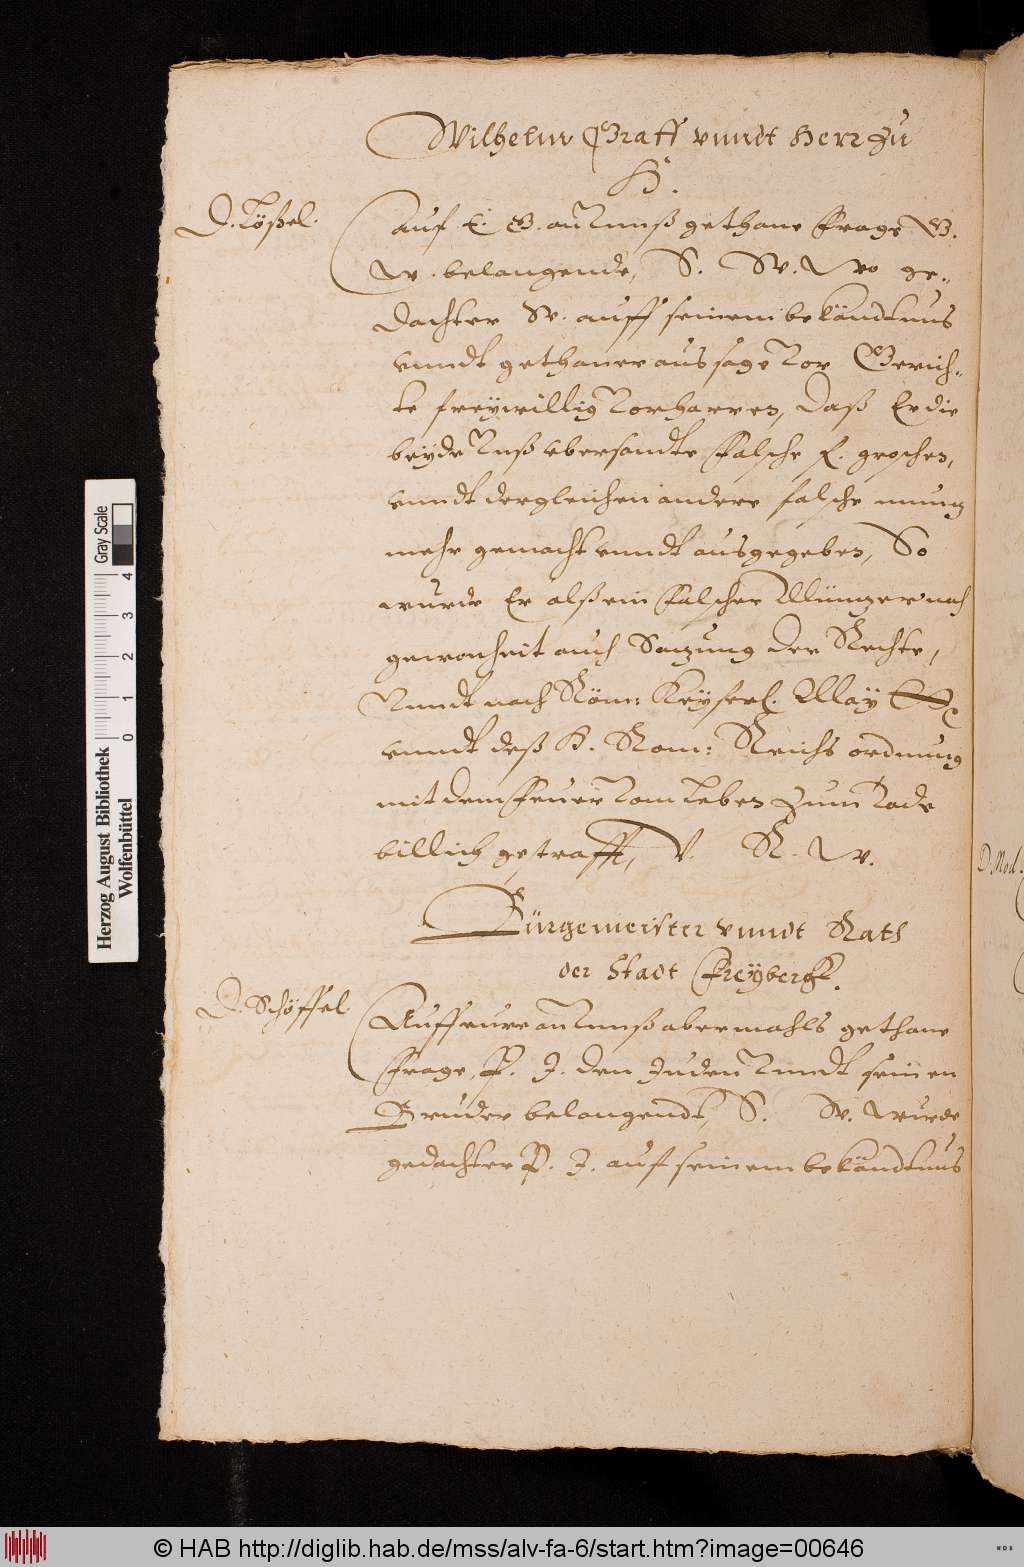 Wilhelm Graff vnndt Herr zu
H.
D. Lößel.
Auf E. G. an Vnnß gethane Frage G.
W. belangende, S. W. Wo ge-
dachter W. auff seinem bekändtnus
vnndt gethaner aussage Vor Gerich-
te freywillig Vorharren, daß Er die
beyde Vnß vbersandte Falsche f. groschen,
vnndt dergleichen andere falsche muntz
mehr gemacht vnndt ausgegeben, So
wurde Er alß ein Falscher Müntzer nach
gewonheit auch Satzung der Rechte,
Vnndt nach Röm: Keyserl. May
vnndt deß H. Rom: Reichs ordnung
mit dem Feuer Vom Leben zum Tode
billich gestrafft, V. R. W.
Bürgemeister vnndt Rath
der Stadt Freyberck.
D. Schöffel
Auff eure an Vnnß abermahls gethane
Frage, P. J. den Juden Vnndt seinen
Bruder belangendt, S. W. wurde
gedachter P. J. auf seinem bekändtnus
D. Mod
Herzog August Bibliothek
Wolfenbüttel
0 1 2 3 4
Gray Scale
© HAB http://diglib.hab.de/mss/alv-fa-6/start.htm?image=00646